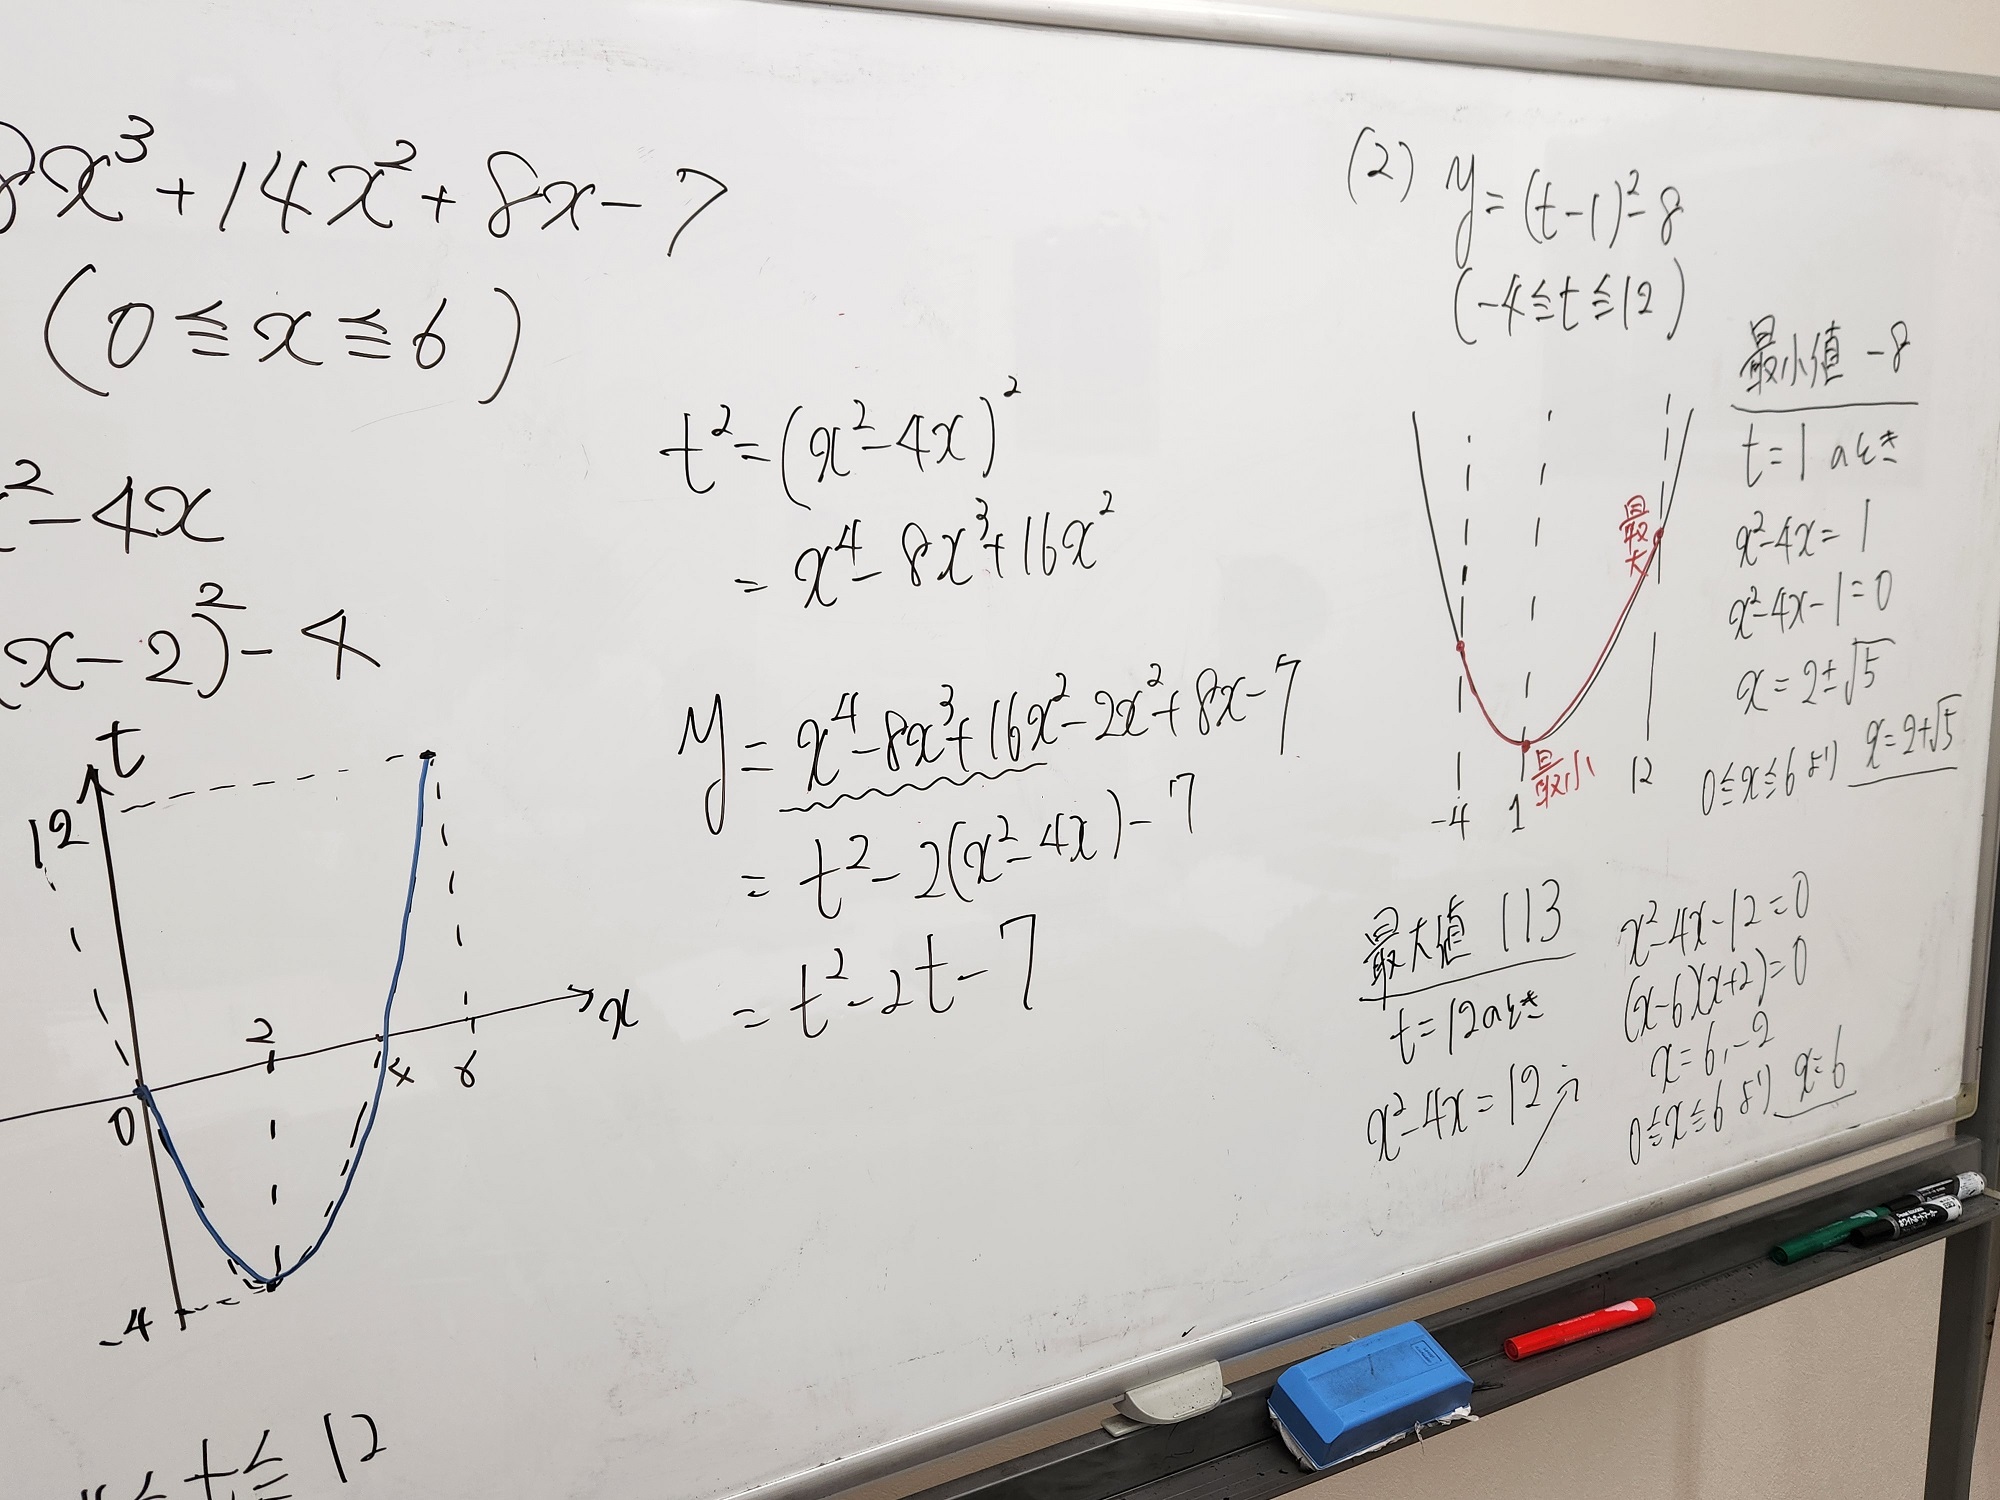 8x³+14x²+8x-7
(0≦x≦6)
²-4x
(x-2)²-4
t
12
2
4
6
x
0
-4
≦t≦12
t²=(x²-4x)²
=x⁴-8x³+16x²
y=x⁴-8x³+16x²-2x²+8x-7
=t²-2(x²-4x)-7
=t²-2t-7
(2) y=(t-1)²-8
(-4≦t≦12)
最大
最小
-4
1
12
最小値 -8
t=1のとき
x²-4x=1
x²-4x-1=0
x=2±√5
0≦x≦6より x=2+√5
最大値 113
t=12のとき
x²-4x=12
x²-4x-12=0
(x-6)(x+2)=0
x=6,-2
0≦x≦6より x=6